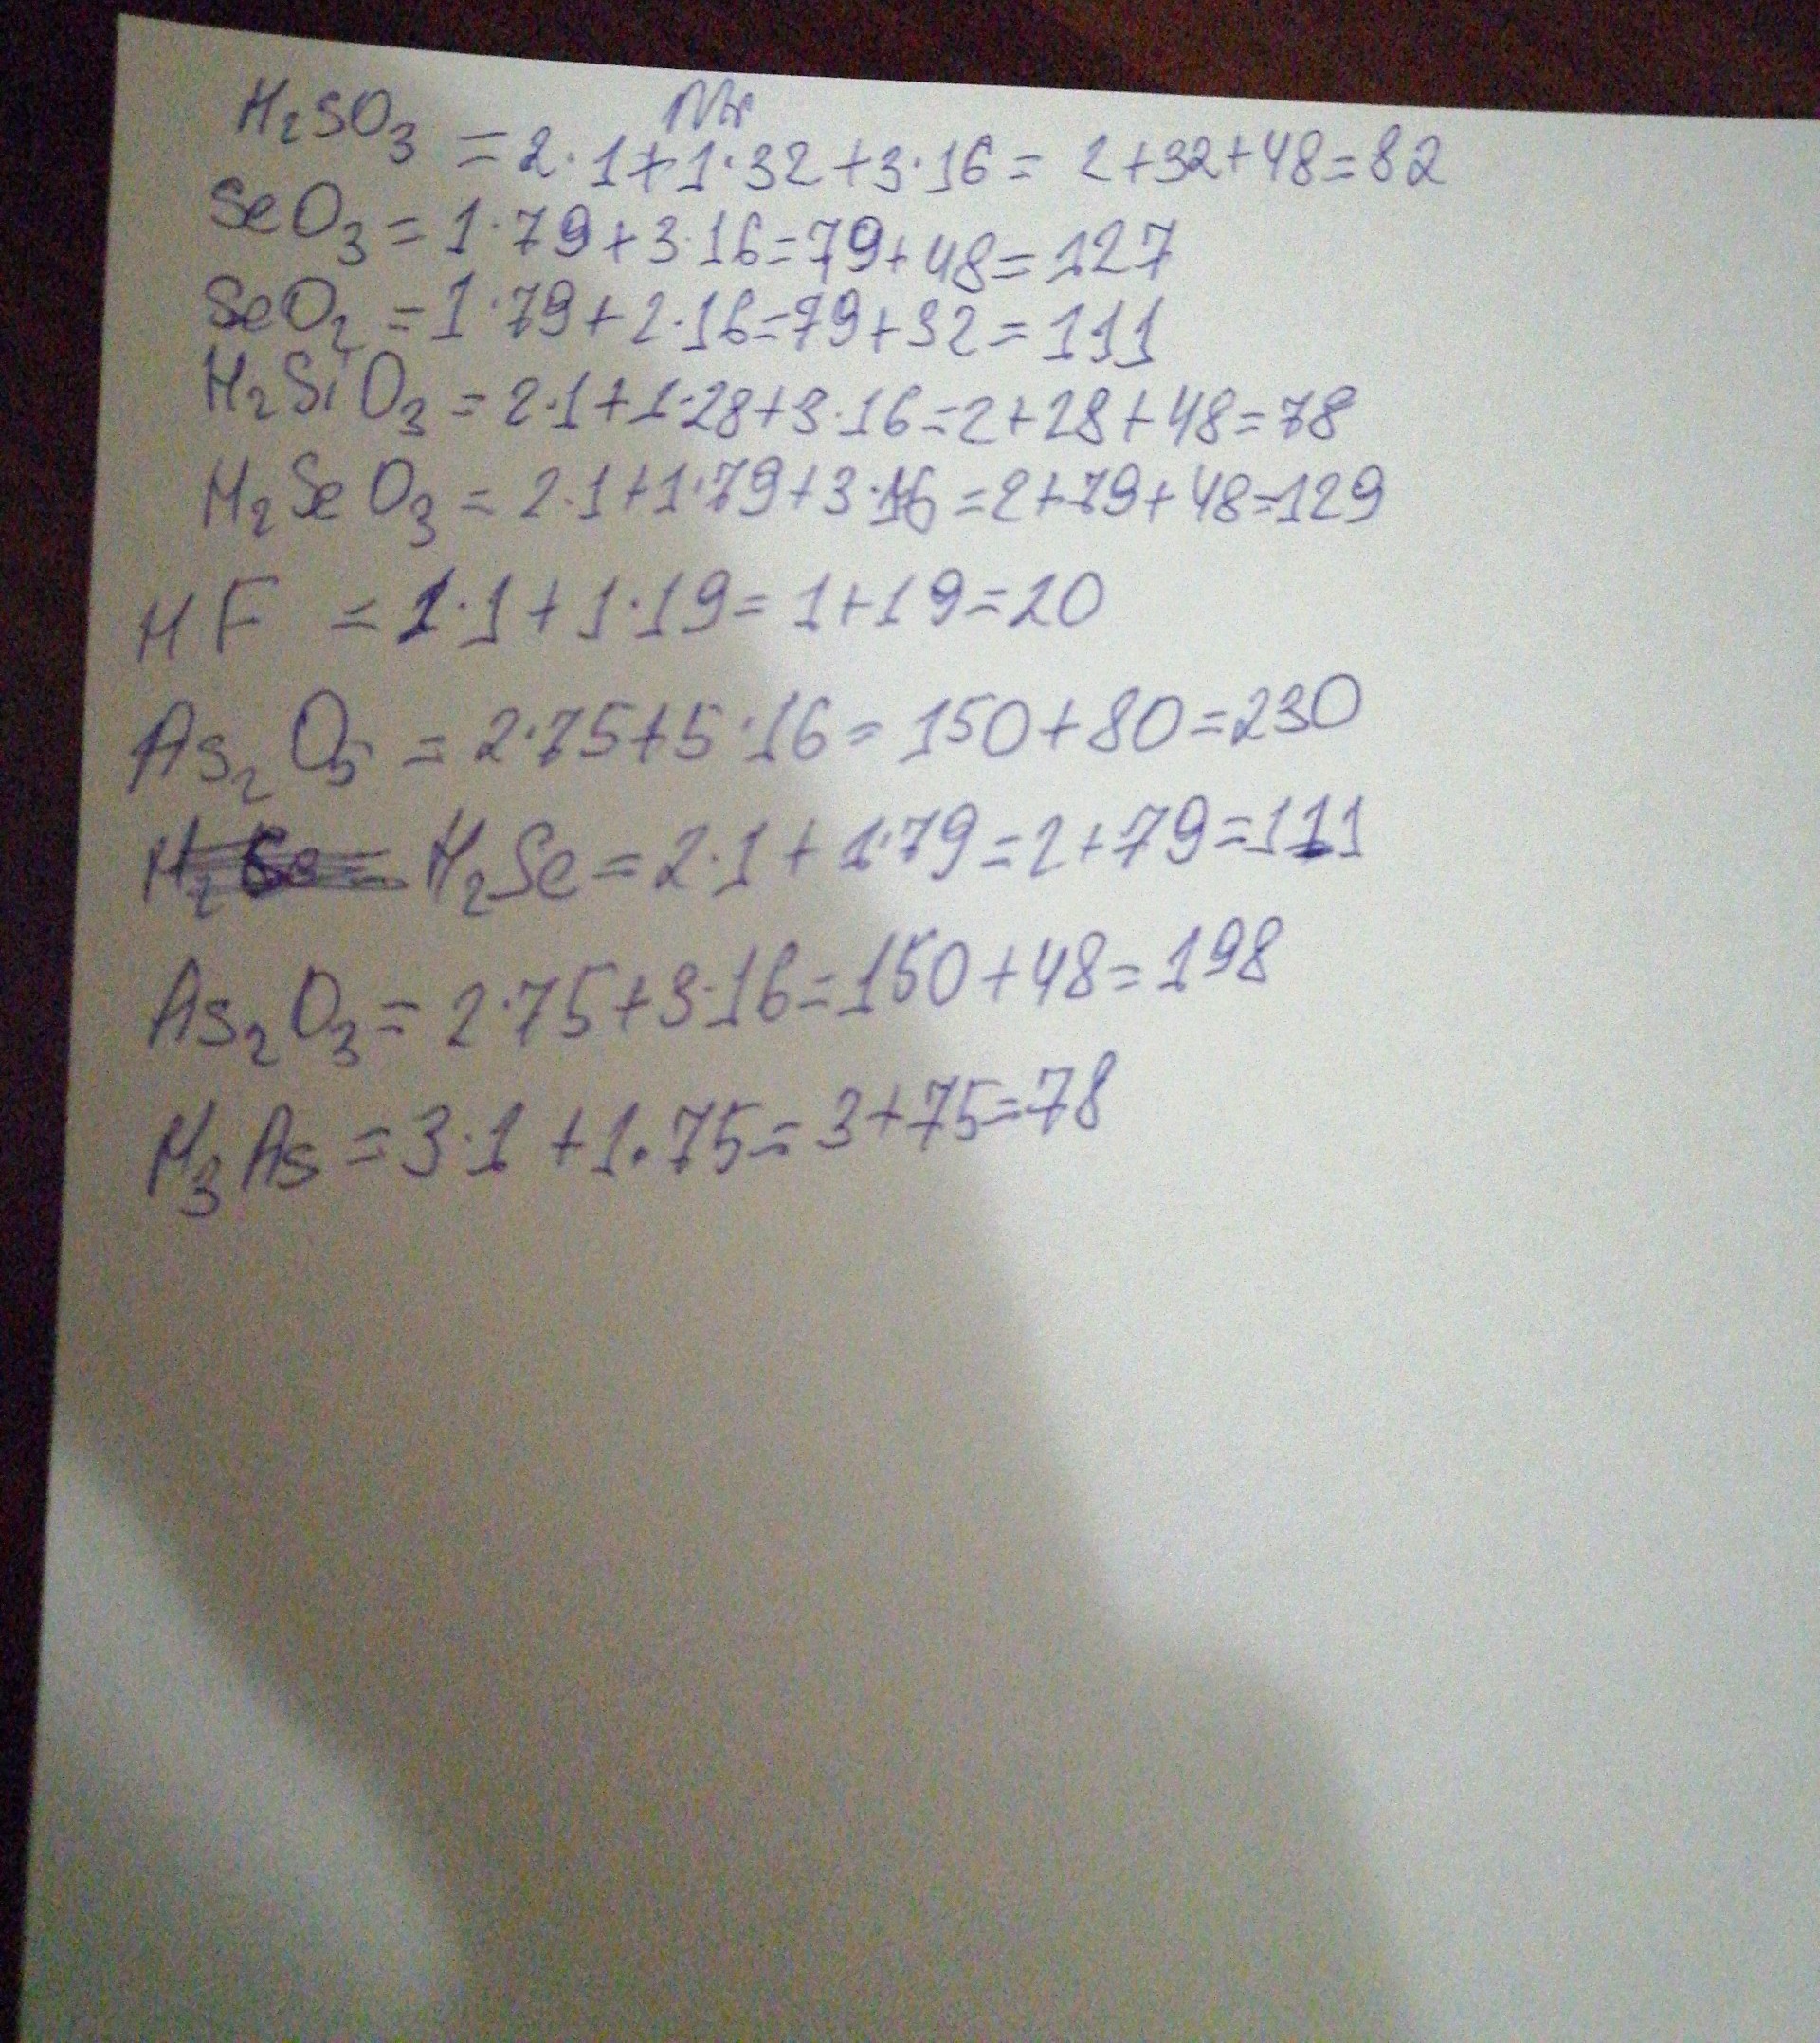 Mr
H₂SO₃ = 2·1+1·32+3·16= 2+32+48=82
SeO₃ = 1·79+3·16=79+48=127
SeO₂ = 1·79+2·16=79+32=111
H₂SiO₃ = 2·1+1·28+3·16=2+28+48=78
H₂SeO₃ = 2·1+1·79+3·16=2+79+48=129
HF = 1·1+1·19=1+19=20
As₂O₅ = 2·75+5·16=150+80=230
H₂Se=2·1+1·79=2+79=111
As₂O₃=2·75+3·16=150+48=198
H₃As=3·1+1·75=3+75=78